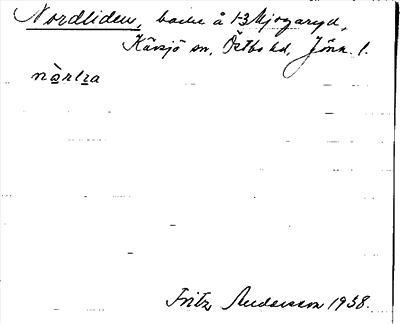 Nordliden, backe å 1-3 Mjogaryd,
Kävsjö sn, Östbo hd, Jönk. l.
nò̱rlɩ̱a
Fritz Andersson 1938.